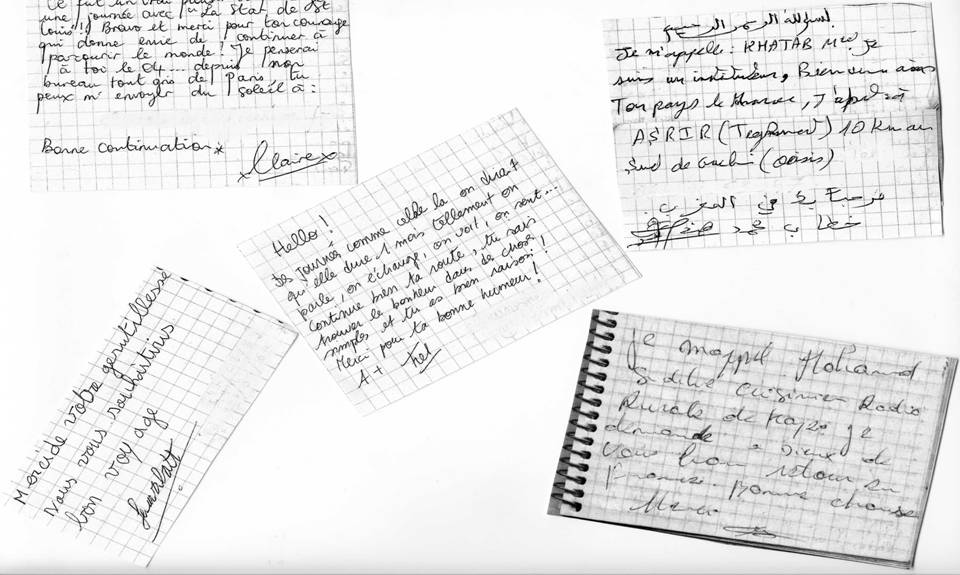 Ce fut un vrai
une journée avec "La Stat de St
Louis"!) Bravo et merci pour ton courage
qui donne envie de continuer à
parcourir le monde! Je penserai
à toi le 04... depuis mon
bureau tout gris de Paris, tu
peux m'envoyer du soleil à:
Bonne continuation*
Claire
بسم الله الرحمن الرحيم
Je m'appelle: KHATAB Med je
suis un instituteur, Bienvenu dans
Ton pays le Maroc, J'
ASRIR (Teghmert) 10 Km au
Sud de (oasis)
مرحبا بك في المغرب
خطاب محمد
Hello!
Des journées comme celle là on dirait
qu'elle dure 1 mois tellement on
parle, on échange, on voit, on sent...
Continue bien ta route, tu sais
trouver le bonheur dans des chose
simples et tu as bien raison!
Merci pour ta bonne humeur!
A+
Mercide votre gentillesse
Nous vous souhaitiris
bon voyage
je mappel Mohamd
Sidibé cuisinier Radio
Rurale de Kayes je
demande à Dieux de
vous bon retour en
France. Bonne chance
Merci